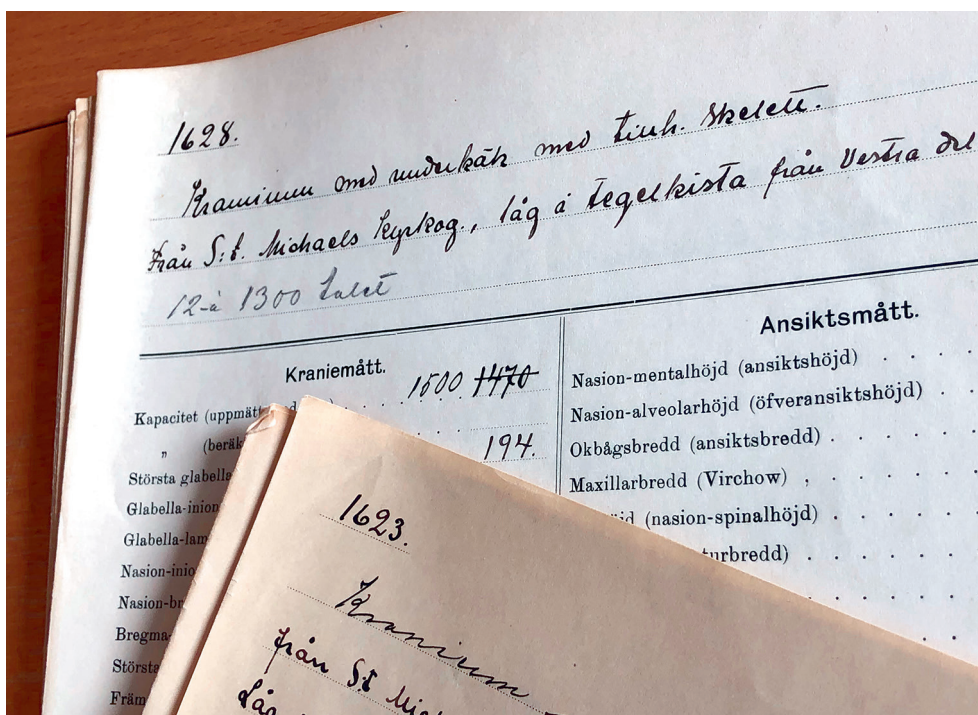 1628.
Kraniuum med underkäk med tinh. skelett.
Från S:t. Michaels Kyrkog., låg i tegelkista från Vestra del
12-à 1300 talet
Kraniemått.
Kapacitet (uppmätt 1500 1470
„ (beräk 194.
Största glabella
Glabella-inion
Glabella-lam
Nasion-inio
Nasion-br
Bregma-
Största
Främ
Ansiktsmått.
Nasion-mentalhöjd (ansiktshöjd) . . . .
Nasion-alveolarhöjd (öfveransiktshöjd) .
Okbågsbredd (ansiktsbredd) . . . . .
Maxillarbredd (Virchow) , . . . .
jd (nasion-spinalhöjd) . . . . .
turbredd) . . . .
1623.
Kranium
från S:t Mich
Låg